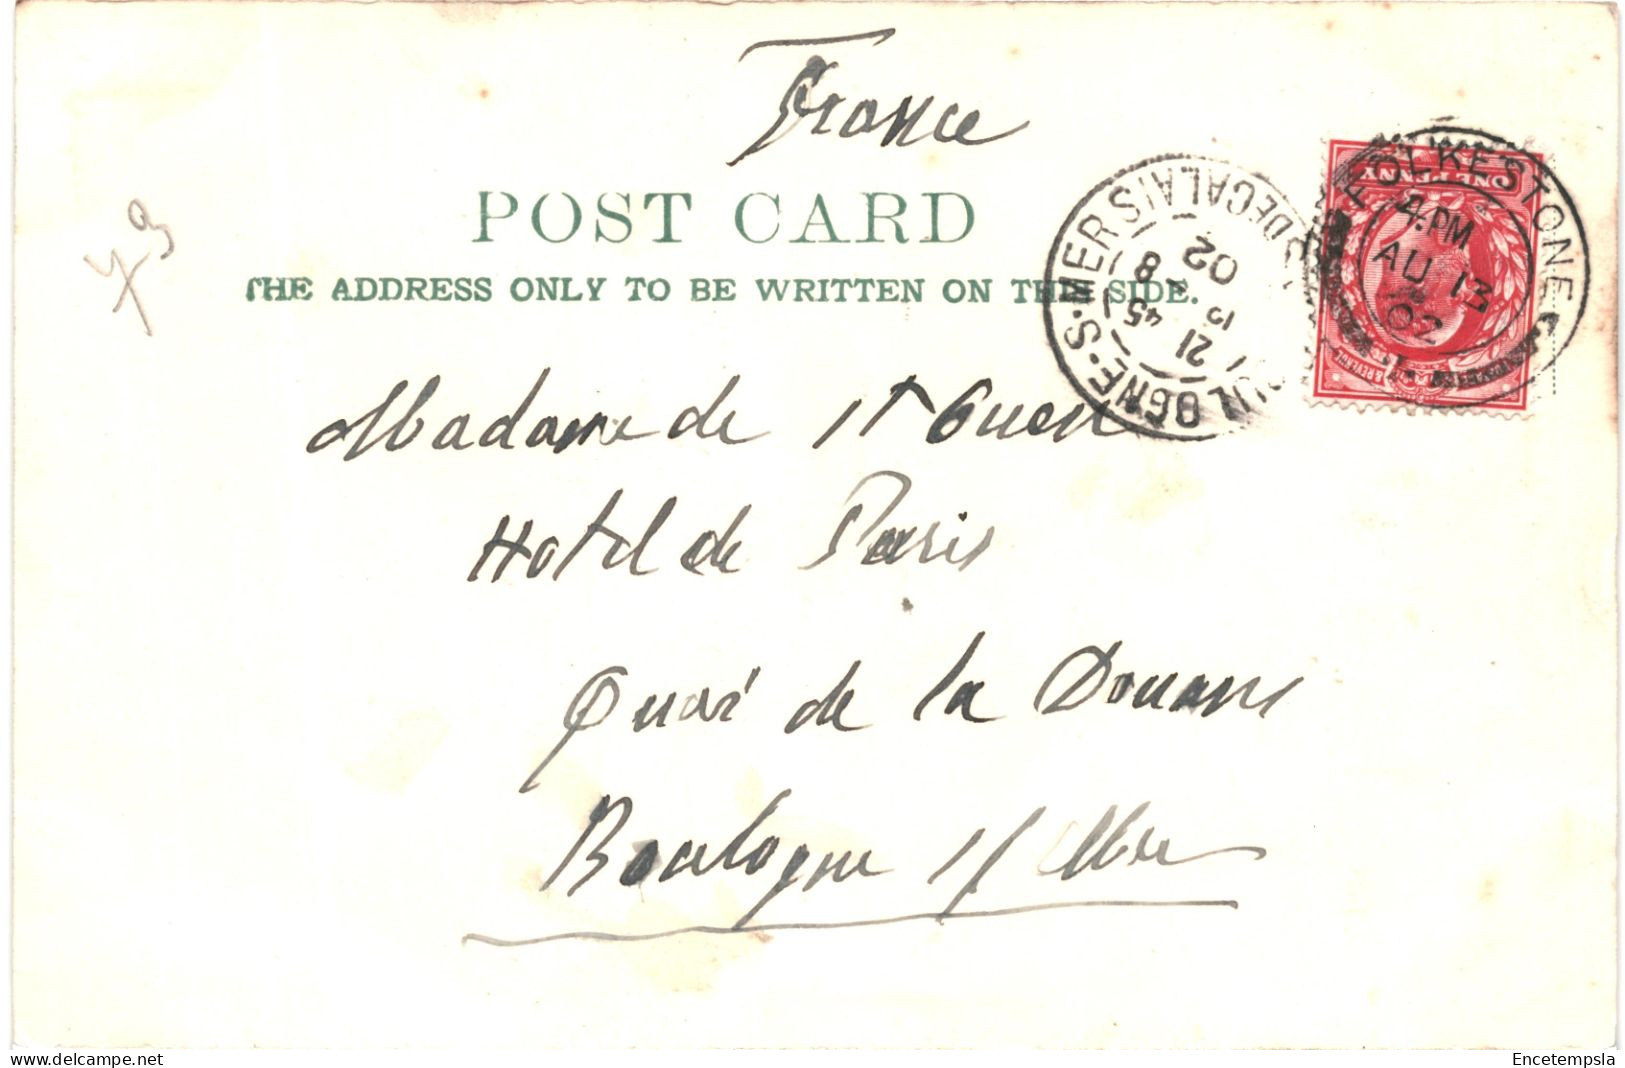 France
POST CARD
THE ADDRESS ONLY TO BE WRITTEN ON THE SIDE.
73
FOLKESTONE
4.PM
AU 13
02
ONE PENNY
BOULOGNE-S-MER
PAS DE CALAIS
21 45
13 8
02
Madame de St Ouen
Hotel de Paris
Quai de la Douane
Boulogne s/ Mer
delcampe.net
Encetempsla